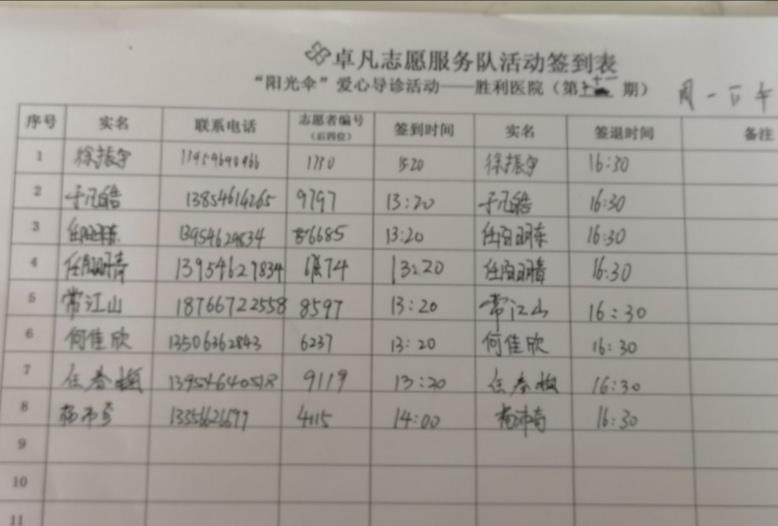 卓凡志愿服务队活动签到表
“阳光伞”爱心导诊活动——胜利医院（第 期） 周一下午
序号 实名 联系电话 志愿者编号（后四位） 签到时间 实名 签退时间 备注
1 徐振宇 1750 1520 徐振宇 16:30
2 于凡皓 13854614265 9797 13:20 于凡皓 16:30
3 13954629834 6685 13:20 16:30
4 13954629834 13:20 16:30
5 常江山 18766722558 8597 13:20 常江山 16:30
6 何佳欣 13506362843 6237 13:20 何佳欣 16:30
7 任春梅 13954640518 9119 13:20 任春梅 16:30
8 13556626697 4115 14:00 16:30
9
10
11